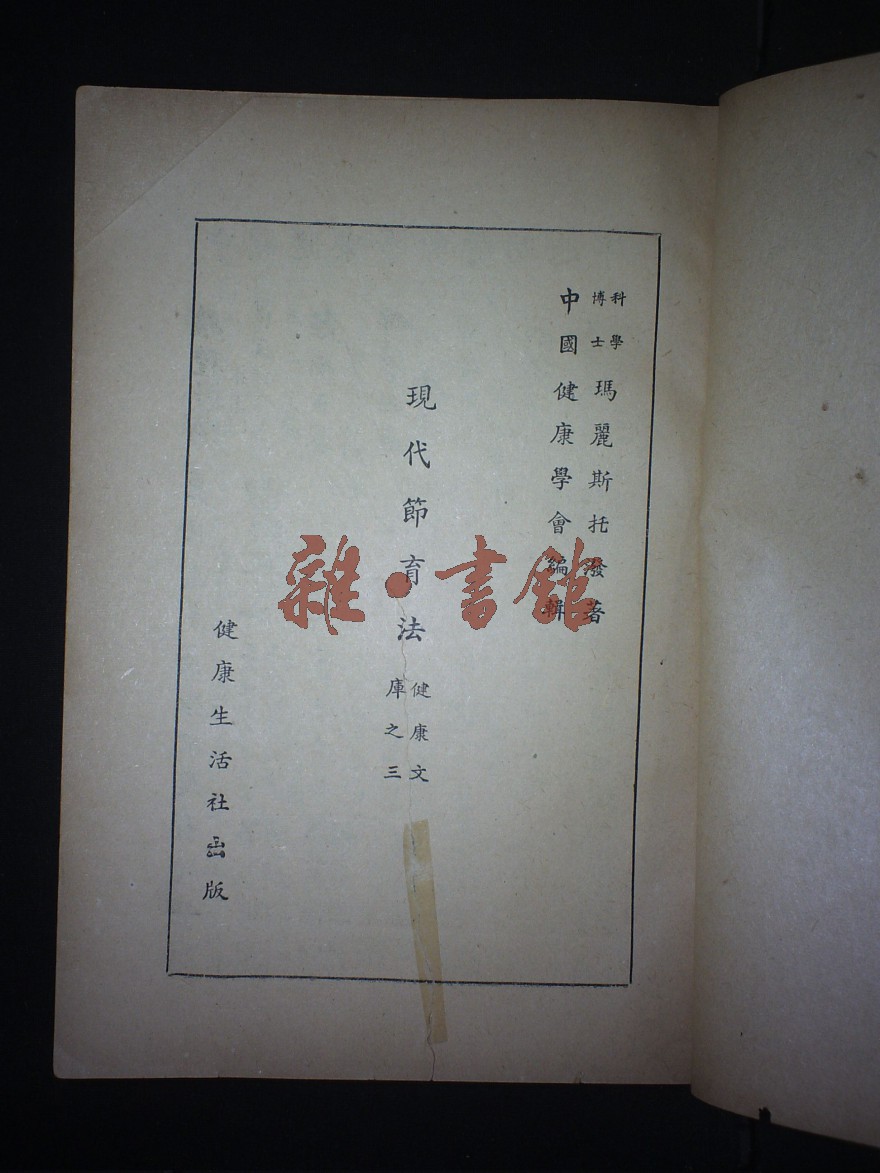 科學博士 瑪麗斯托潑著
中國健康學會編輯
現代節育法 健康文庫之三
健康生活社出版
雜·書館